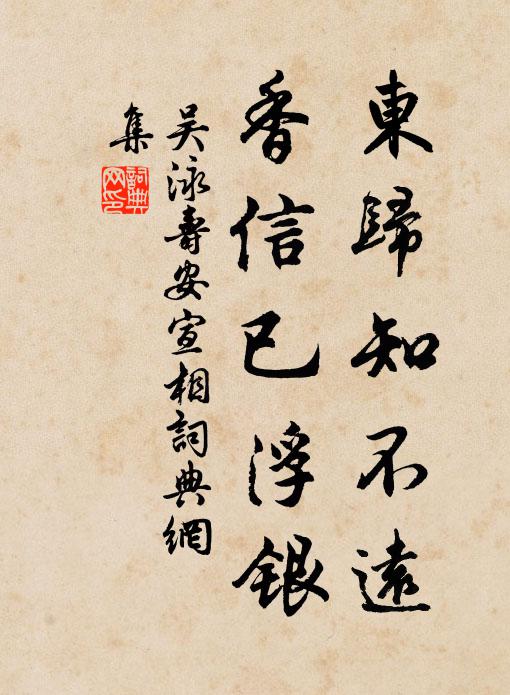 東歸知不遠
香信已浮銀
吴泳壽安宣相詞典網
集
詞典
网印